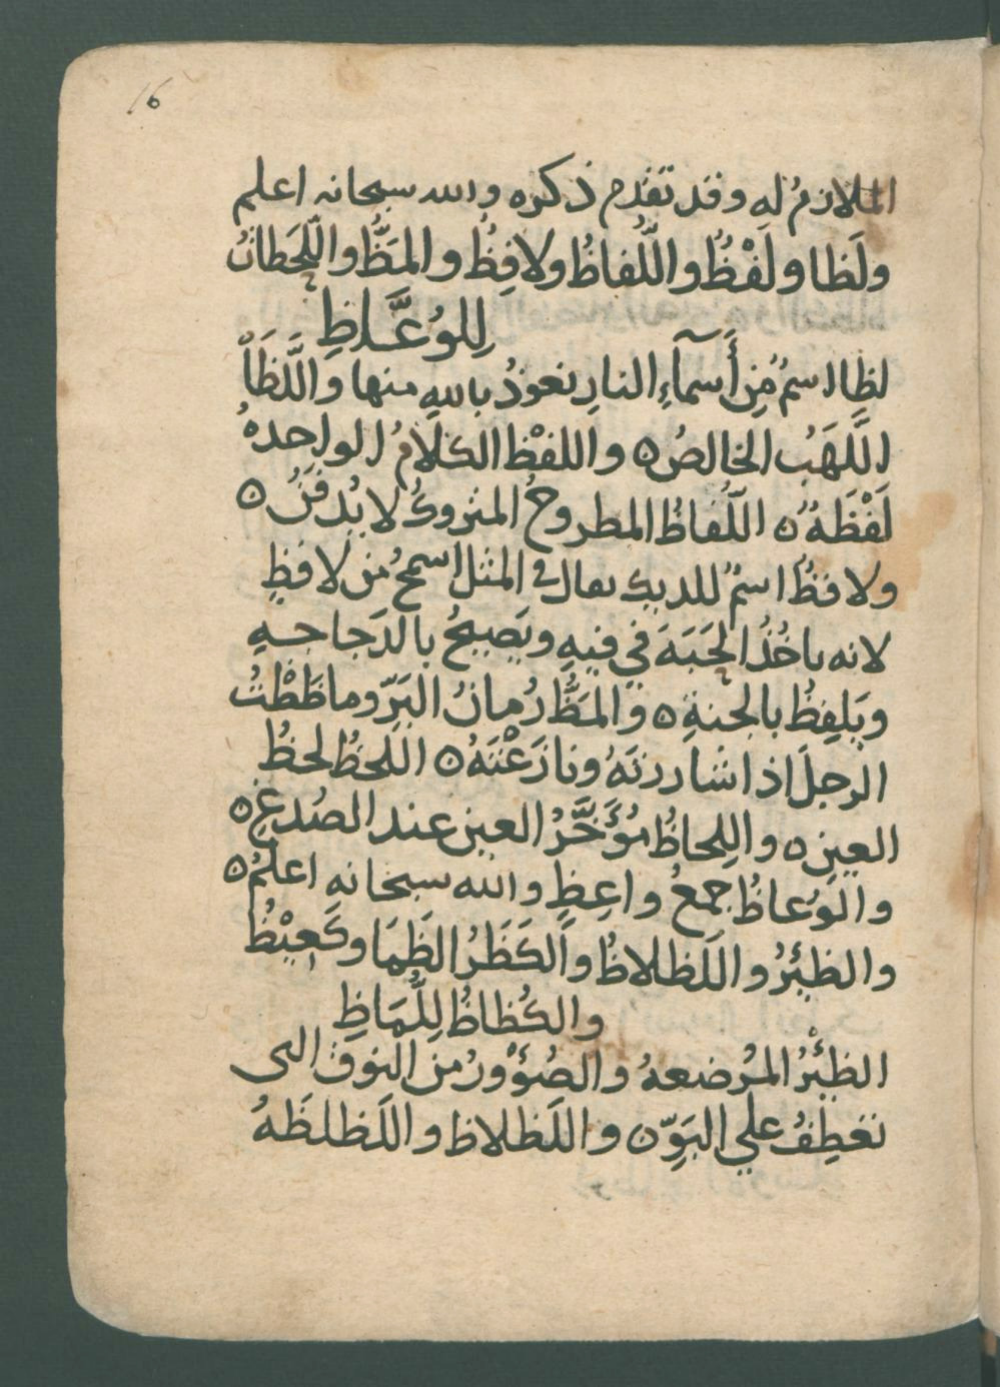 16
الملازم له وقد تقدم ذكره والله سبحانه اعلم
ولَظا ولَفْظُ واللُّفاظُ ولافِظُ والمَظُّ واللَّحَظانُ
لِلوُعَّاظِ
لظا اسمٌ مِن أَسمآءِ النارِ نعوذُ باللهِ منها واللَّظَا
اللَّهَبُ الخالصُ ه واللفْظ الكلامُ الواحدهُ
لَفْظَةٌ ه اللُّفاظُ المطروحُ المتروكُ لا يُدفَنُ ه
ولافظُ اسمٌ للديك يقال في المثل اسمحُ من لافظٍ
لانه ياخُذُ الحَبَةَ في فيهِ ويَصيحُ بالدَجاجهِ
ويَلفِظُ بالحبةِ ه والمَظُّ رُمانُ البَرّ وماظَظْتُ
الرجلَ اذا شاررتَهُ ونازَعْتَهُ ه اللحظُ لحظُ
العينِ ه واللِحاظُ مُؤَخَّرُ العينِ عند الصُدغِ ه
والوُعاظُ جمعُ واعِظٍ والله سبحانه اعلمُ ه
والظِئرُ واللَظلاظُ والكَظَرُ الظَمَا وكَعِيْظُ
والكُظاظُ لِلُّمَاظِ
الظِئْرُ المُرضعهُ والصُؤْورُ من النوق التى
تعطِفُ علي البَوِّ ه واللَظلاظ واللَظلَظَهُ